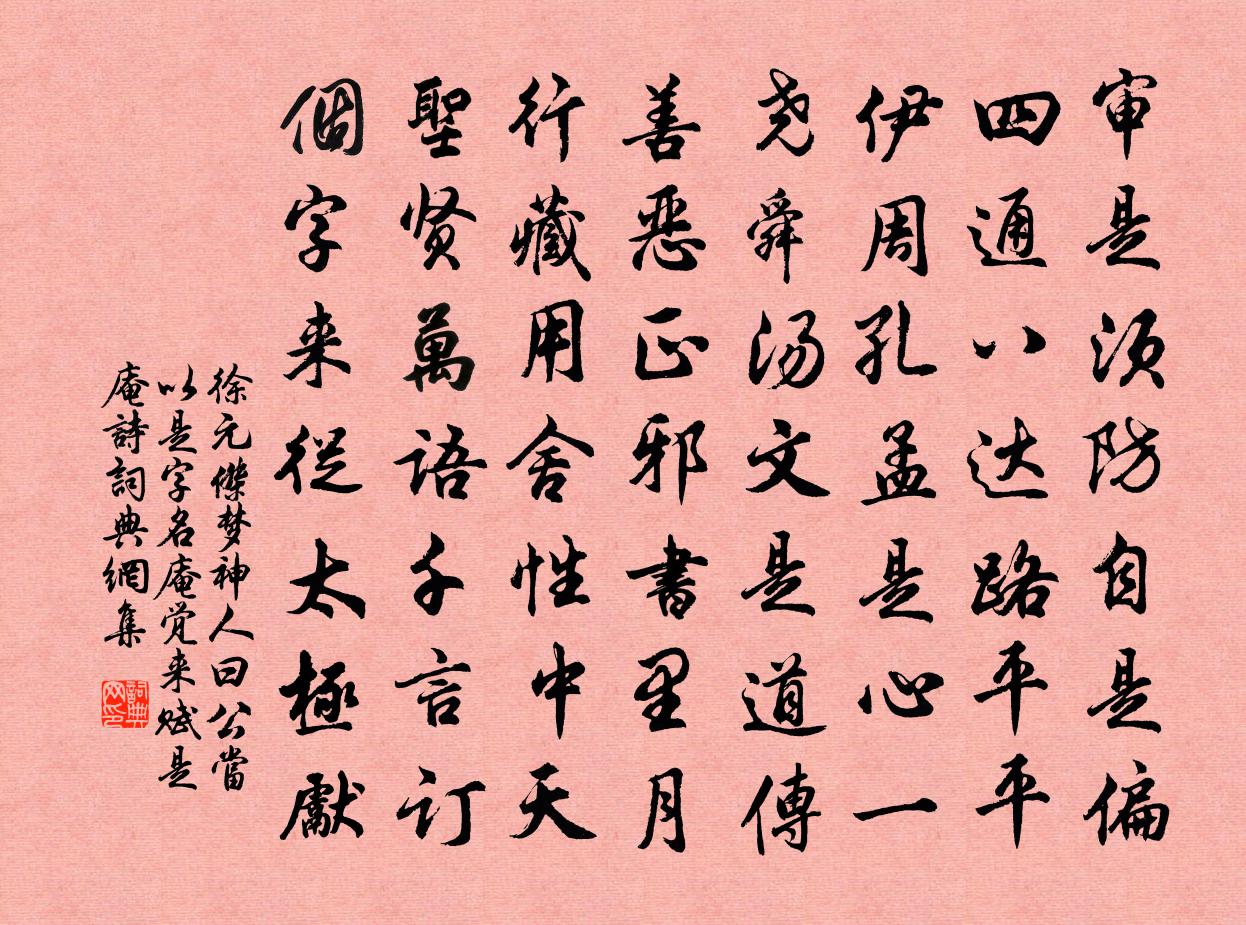 审是须防自是偏
四通八达路平平
伊周孔孟是心一
尧舜汤文是道傳
善恶正邪書里月
行藏用舍性中天
聖贤萬语千言订
個字来從太極獻
徐元傑梦神人曰公當
以是字名庵觉来赋是
庵詩詞典網集
詞典网印